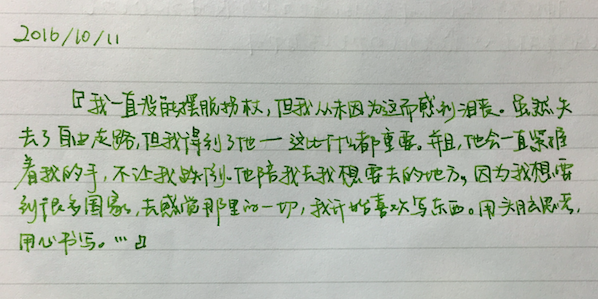 2016/10/11
『我一直没能摆脱拐杖,但我从未因为这而感到沮丧。虽然失
去了自由走路,但我得到了他一这比什么都重要。并且,他会一直紧握
着我的手,不让我跌倒。他陪我去我想要去的地方。因为我想要
到很多国家,去感觉那里的一切,我开始喜欢写东西。用头脑去思考,
用心书写。…』